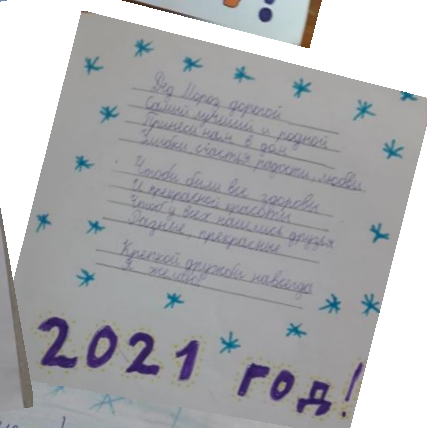 Дед Мороз дорогой
Самый лучший и родной
Принеси нам в дом
Улыбки счастья радости, любви
Чтобы были все здоровы
И прекрасной красоты
Чтоб у всех нашлись друзья
Родные, прекрасные
Крепкой дружбы навсегда
Я желаю
2021 год!